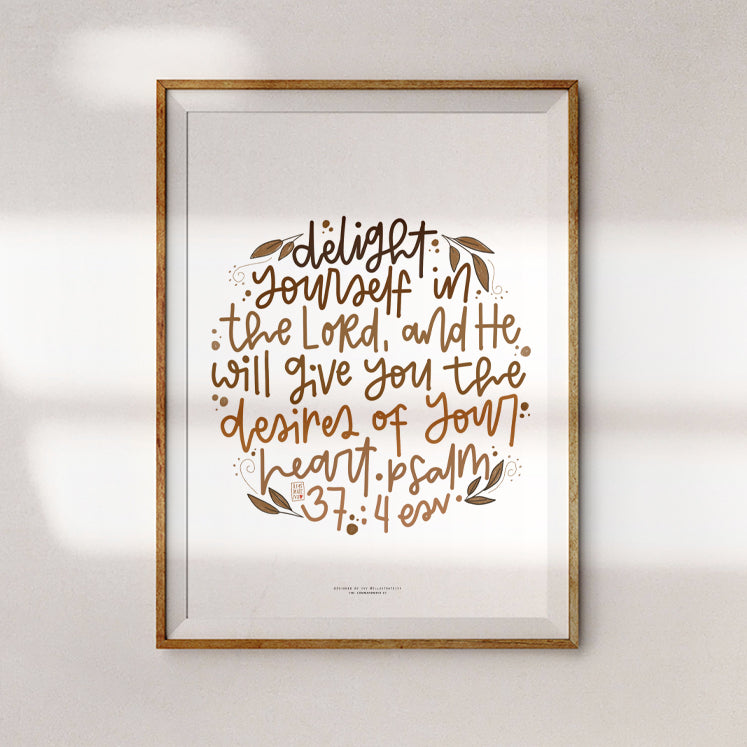 delight
yourself in
the Lord, and He
will give you the
desires of your
heart. psalm
37:4 esv